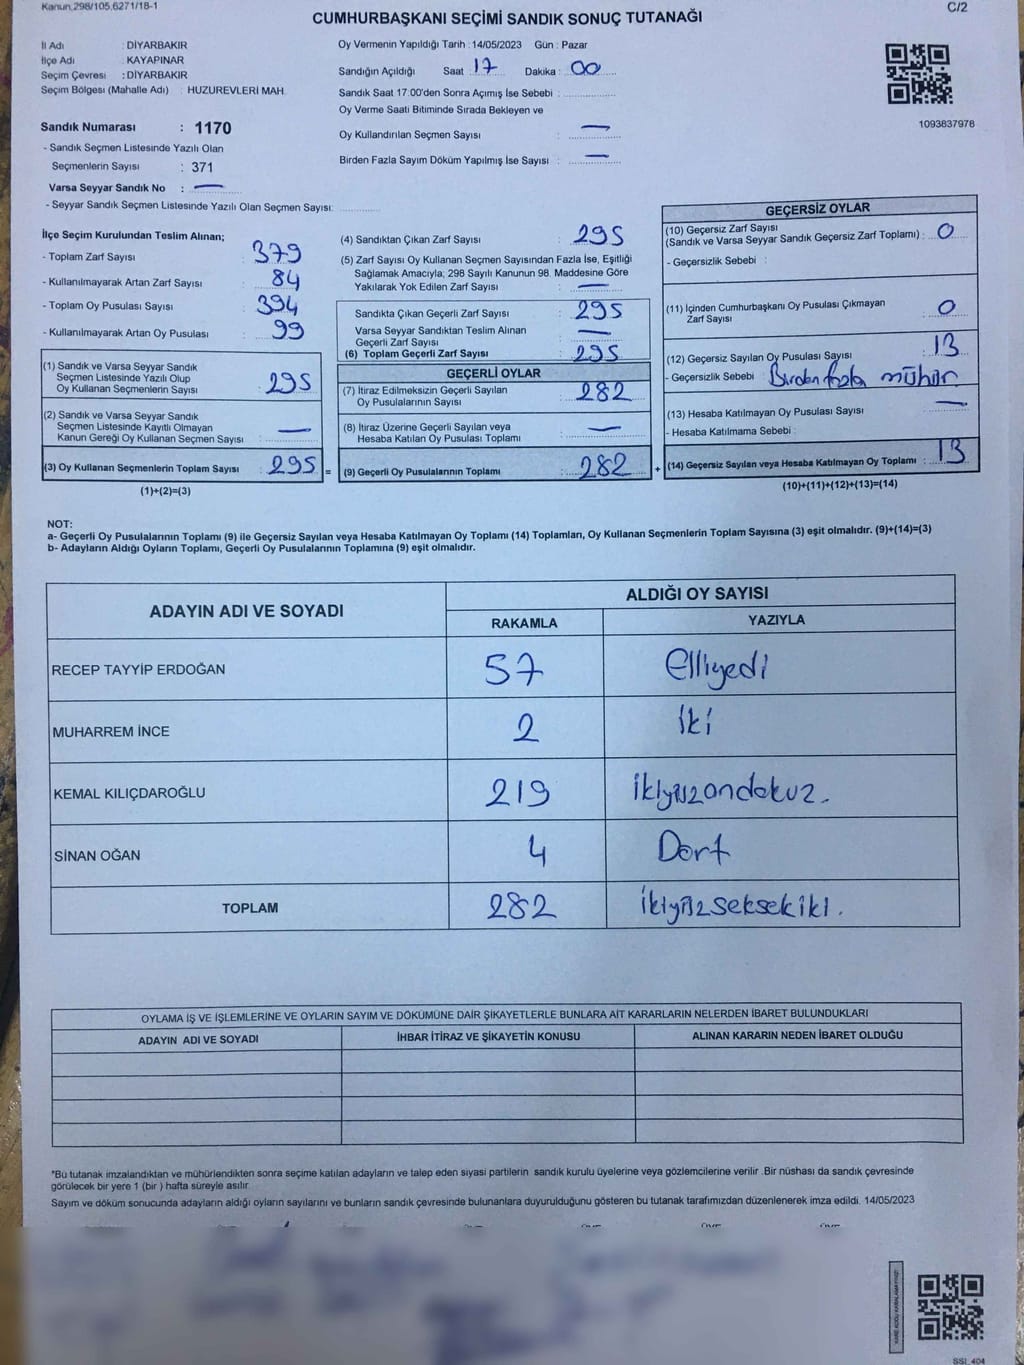 Kanun.298/105,6271/18-1
C/2
CUMHURBAŞKANI SEÇİMİ SANDIK SONUÇ TUTANAĞI
İl Adı : DİYARBAKIR
İlçe Adı : KAYAPINAR
Seçim Çevresi : DİYARBAKIR
Seçim Bölgesi (Mahalle Adı) : HUZUREVLERİ MAH.
Sandık Numarası : 1170
- Sandık Seçmen Listesinde Yazılı Olan
Seçmenlerin Sayısı : 371
Varsa Seyyar Sandık No : —
- Seyyar Sandık Seçmen Listesinde Yazılı Olan Seçmen Sayısı:
Oy Vermenin Yapıldığı Tarih : 14/05/2023 Gün : Pazar
Sandığın Açıldığı Saat 17 Dakika : 00
Sandık Saat 17:00'den Sonra Açımış İse Sebebi :
Oy Verme Saati Bitiminde Sırada Bekleyen ve
Oy Kullandırılan Seçmen Sayısı : —
Birden Fazla Sayım Döküm Yapılmış İse Sayısı : —
1093837976
İlçe Seçim Kurulundan Teslim Alınan;
- Toplam Zarf Sayısı : 379
- Kullanılmayarak Artan Zarf Sayısı : 84
- Toplam Oy Pusulası Sayısı : 394
- Kullanılmayarak Artan Oy Pusulası : 99
(1) Sandık ve Varsa Seyyar Sandık
Seçmen Listesinde Yazılı Olup
Oy Kullanan Seçmenlerin Sayısı : 295
(2) Sandık ve Varsa Seyyar Sandık
Seçmen Listesinde Kayıtlı Olmayan
Kanun Gereği Oy Kullanan Seçmen Sayısı : —
(3) Oy Kullanan Seçmenlerin Toplam Sayısı : 295 =
(1)+(2)=(3)
(4) Sandıktan Çıkan Zarf Sayısı : 295
(5) Zarf Sayısı Oy Kullanan Seçmen Sayısından Fazla İse, Eşitliği
Sağlamak Amacıyla; 298 Sayılı Kanunun 98. Maddesine Göre
Yakılarak Yok Edilen Zarf Sayısı : —
Sandıkta Çıkan Geçerli Zarf Sayısı : 295
Varsa Seyyar Sandıktan Teslim Alınan
Geçerli Zarf Sayısı : —
(6) Toplam Geçerli Zarf Sayısı : 295
GEÇERLİ OYLAR
(7) İtiraz Edilmeksizin Geçerli Sayılan
Oy Pusulalarının Sayısı : 282
(8) İtiraz Üzerine Geçerli Sayılan veya
Hesaba Katılan Oy Pusulası Toplamı : —
(9) Geçerli Oy Pusulalarının Toplamı : 282 +
GEÇERSİZ OYLAR
(10) Geçersiz Zarf Sayısı
(Sandık ve Varsa Seyyar Sandık Geçersiz Zarf Toplamı) : 0
- Geçersizlik Sebebi :
(11) İçinden Cumhurbaşkanı Oy Pusulası Çıkmayan
Zarf Sayısı : 0
(12) Geçersiz Sayılan Oy Pusulası Sayısı : 13
- Geçersizlik Sebebi Birden fazla mühür
(13) Hesaba Katılmayan Oy Pusulası Sayısı : —
- Hesaba Katılmama Sebebi :
(14) Geçersiz Sayılan veya Hesaba Katılmayan Oy Toplamı : 13
(10)+(11)+(12)+(13)=(14)
NOT:
a- Geçerli Oy Pusulalarının Toplamı (9) ile Geçersiz Sayılan veya Hesaba Katılmayan Oy Toplamı (14) Toplamları, Oy Kullanan Seçmenlerin Toplam Sayısına (3) eşit olmalıdır. (9)+(14)=(3)
b- Adayların Aldığı Oyların Toplamı, Geçerli Oy Pusulalarının Toplamına (9) eşit olmalıdır.
ADAYIN ADI VE SOYADI
ALDIĞI OY SAYISI
RAKAMLA YAZIYLA
RECEP TAYYİP ERDOĞAN 57 Elliyedi
MUHARREM İNCE 2 İki
KEMAL KILIÇDAROĞLU 219 İkiyüzondokuz.
SİNAN OĞAN 4 Dört
TOPLAM 282 İkiyüzseksekiki.
OYLAMA İŞ VE İŞLEMLERİNE VE OYLARIN SAYIM VE DÖKÜMÜNE DAİR ŞİKAYETLERLE BUNLARA AİT KARARLARIN NELERDEN İBARET BULUNDUKLARI
ADAYIN ADI VE SOYADI İHBAR İTİRAZ VE ŞİKAYETİN KONUSU ALINAN KARARIN NEDEN İBARET OLDUĞU
*Bu tutanak imzalandıktan ve mühürlendikten sonra seçime katılan adayların ve talep eden siyasi partilerin sandık kurulu üyelerine veya gözlemcilerine verilir .Bir nüshası da sandık çevresinde
görülecek bir yere 1 (bir ) hafta süreyle asılır.
Sayım ve döküm sonucunda adayların aldığı oyların sayılarını ve bunların sandık çevresinde bulunanlara duyurulduğunu gösteren bu tutanak tarafımızdan düzenlenerek imza edildi. 14/05/2023
SSI_404